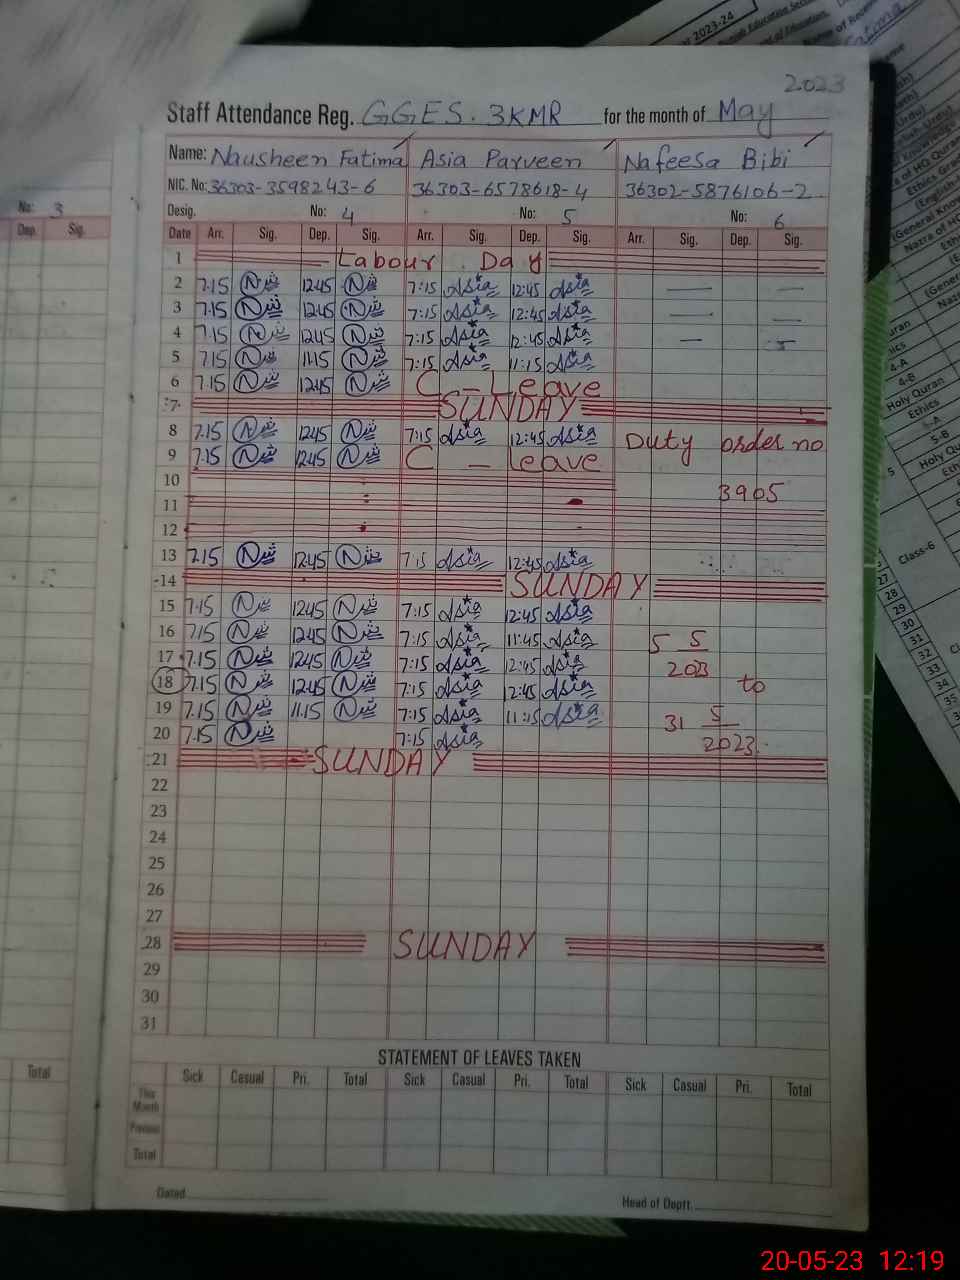 2023
Staff Attendance Reg. GGES. 3KMR for the month of May
Name: Nausheen Fatima Asia Parveen Nafeesa Bibi
NIC. No: 36303-3598243-6 36303-6578618-4 36302-5876106-2
Desig. No: 4 No: 5 No: 6
Date Arr. Sig. Dep. Sig. Arr. Sig. Dep. Sig. Arr. Sig. Dep. Sig.
1 Labour Day
2 7.15 N ش 12.45 N ش 7:15 Asia 12:45 Asia — —
3 7.15 N ش 12.45 N ش 7:15 Asia 12:45 Asia — —
4 7.15 N ش 12.45 N ش 7:15 Asia 12:45 Asia —
5 7.15 N ش 11.15 N ش 7:15 Asia 11:15 Asia
6 7.15 N ش 12.45 N ش C - Leave
7 SUNDAY
8 7.15 N ش 12.45 N ش 7:15 Asia 12:45 Asia Duty order no
9 7.15 N ش 12.45 N ش C - leave
10 3905
11
12
13 7.15 N ش 12.45 N ش 7:15 Asia 12:45 Asia
14 SUNDAY
15 7.15 N ش 12.45 N ش 7:15 Asia 12:45 Asia
16 7.15 N ش 12.45 N ش 7:15 Asia 11:45 Asia 5 5
17 7.15 N ش 12.45 N ش 7:15 Asia 12:45 Asia 203
18 7.15 N ش 12.45 N ش 7:15 Asia 12:45 Asia to
19 7.15 N ش 11.15 N ش 7:15 Asia 11:15 Asia 31 5
20 7.15 N ش 7:15 Asia 2023.
21 SUNDAY
22
23
24
25
26
27
28 SUNDAY
29
30
31
STATEMENT OF LEAVES TAKEN
Sick Casual Pri. Total Sick Casual Pri. Total Sick Casual Pri. Total
This Month
Previous
Total
Dated Head of Deptt.
No: 3
Dep. Sig.
Total
2023-24
Class-6
4-A
4-B
Holy Quran
Ethics
5-A
5-B
20-05-23 12:19